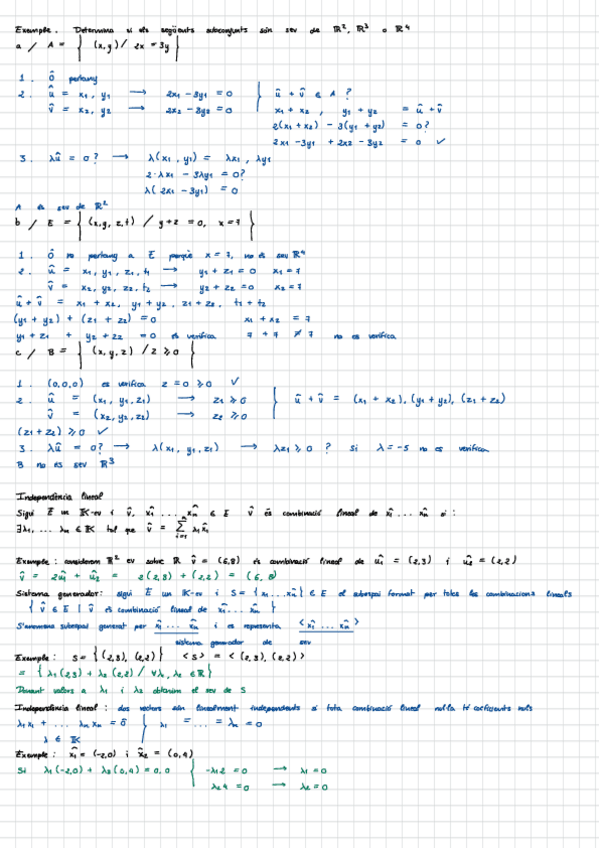 Exemple. Determina si els següents subconjunts són sev de ℝ², ℝ³ o ℝ⁴
a / A = { (x,y) / 2x = 3y }
1. 0⃗ pertany
2. û = x₁, y₁ → 2x₁ - 3y₁ = 0 } û + v̂ ∈ A ?
v̂ = x₂, y₂ → 2x₂ - 3y₂ = 0 x₁ + x₂ , y₁ + y₂ = û + v̂
2(x₁ + x₂) - 3(y₁ + y₂) = 0?
2x₁ - 3y₁ + 2x₂ - 3y₂ = 0 ✓
3. λû = 0? → λ(x₁, y₁) = λx₁, λy₁
2·λx₁ - 3λy₁ = 0?
λ(2x₁ - 3y₁) = 0
A és sev de ℝ²
b / E = { (x,y,z,t) / y+z = 0, x=7 }
1. 0⃗ no pertany a E perquè x = 7, no és sev ℝ⁴
2. û = x₁, y₁, z₁, t₁ → y₁ + z₁ = 0 x₁ = 7
v̂ = x₂, y₂, z₂, t₂ → y₂ + z₂ = 0 x₂ = 7
û + v̂ = x₁ + x₂, y₁ + y₂, z₁ + z₂, t₁ + t₂
(y₁ + y₂) + (z₁ + z₂) = 0 x₁ + x₂ = 7
y₁ + z₁ + y₂ + z₂ = 0 es verifica 7 + 7 ≠ 7 no es verifica
c / B = { (x,y,z) / z ⩾ 0 }
1. (0,0,0) es verifica z = 0 ⩾ 0 ✓
2. û = (x₁, y₁, z₁) → z₁ ⩾ 0 } û + v̂ = (x₁ + x₂), (y₁ + y₂), (z₁ + z₂)
v̂ = (x₂, y₂, z₂) → z₂ ⩾ 0
(z₁ + z₂) ⩾ 0 ✓
3. λû = 0? → λ(x₁, y₁, z₁) → λz₁ ⩾ 0 ? si λ = -5 no es verifica
B no és sev ℝ³
Independència lineal
Sigui E un 𝕂-ev i v̂, x̂₁ ... x̂ₙ ∈ E v̂ és combinació lineal de x̂₁ ... x̂ₙ si:
∃λ₁, ... λₙ ∈ 𝕂 tal que v̂ = Σ λᵢx̂ᵢ
Exemple: considerem ℝ² ev sobre ℝ v̂ = (6,8) és combinació lineal de û₁ = (2,3) i û₂ = (2,2)
v̂ = 2û₁ + û₂ = 2(2,3) + (2,2) = (6, 8)
Sistema generador: sigui E un 𝕂-ev i S = { x₁ ... x̂ₙ } ∈ E el subespai format per totes les combinacions lineals
{ v̂ ∈ E | v̂ és combinació lineal de x̂₁ ... x̂ₙ }
S'anomena subespai generat per x̂₁ ... x̂ₙ i es representa <x̂₁ ... x̂ₙ>
sistema generador de sev
Exemple: S = { (2,3), (2,2) } <S> = < (2,3), (2,2) >
= { λ₁(2,3) + λ₂(2,2) / ∀λ₁, λ₂ ∈ ℝ }
Donant valors a λ₁ i λ₂ obtenim el sev de S
Independència lineal: dos vectors són linealment independents si tota combinació lineal nul·la té coeficients nuls
λ₁x₁ + ... λₙ xₙ = 0⃗ } λ₁ = ... = λₙ = 0
λ ∈ 𝕂
Exemple: x̂₁ = (-2,0) i x̂₂ = (0,4)
Si λ₁(-2,0) + λ₂(0,4) = 0,0 { -λ₁2 = 0 → λ₁ = 0
λ₂4 = 0 → λ₂ = 0